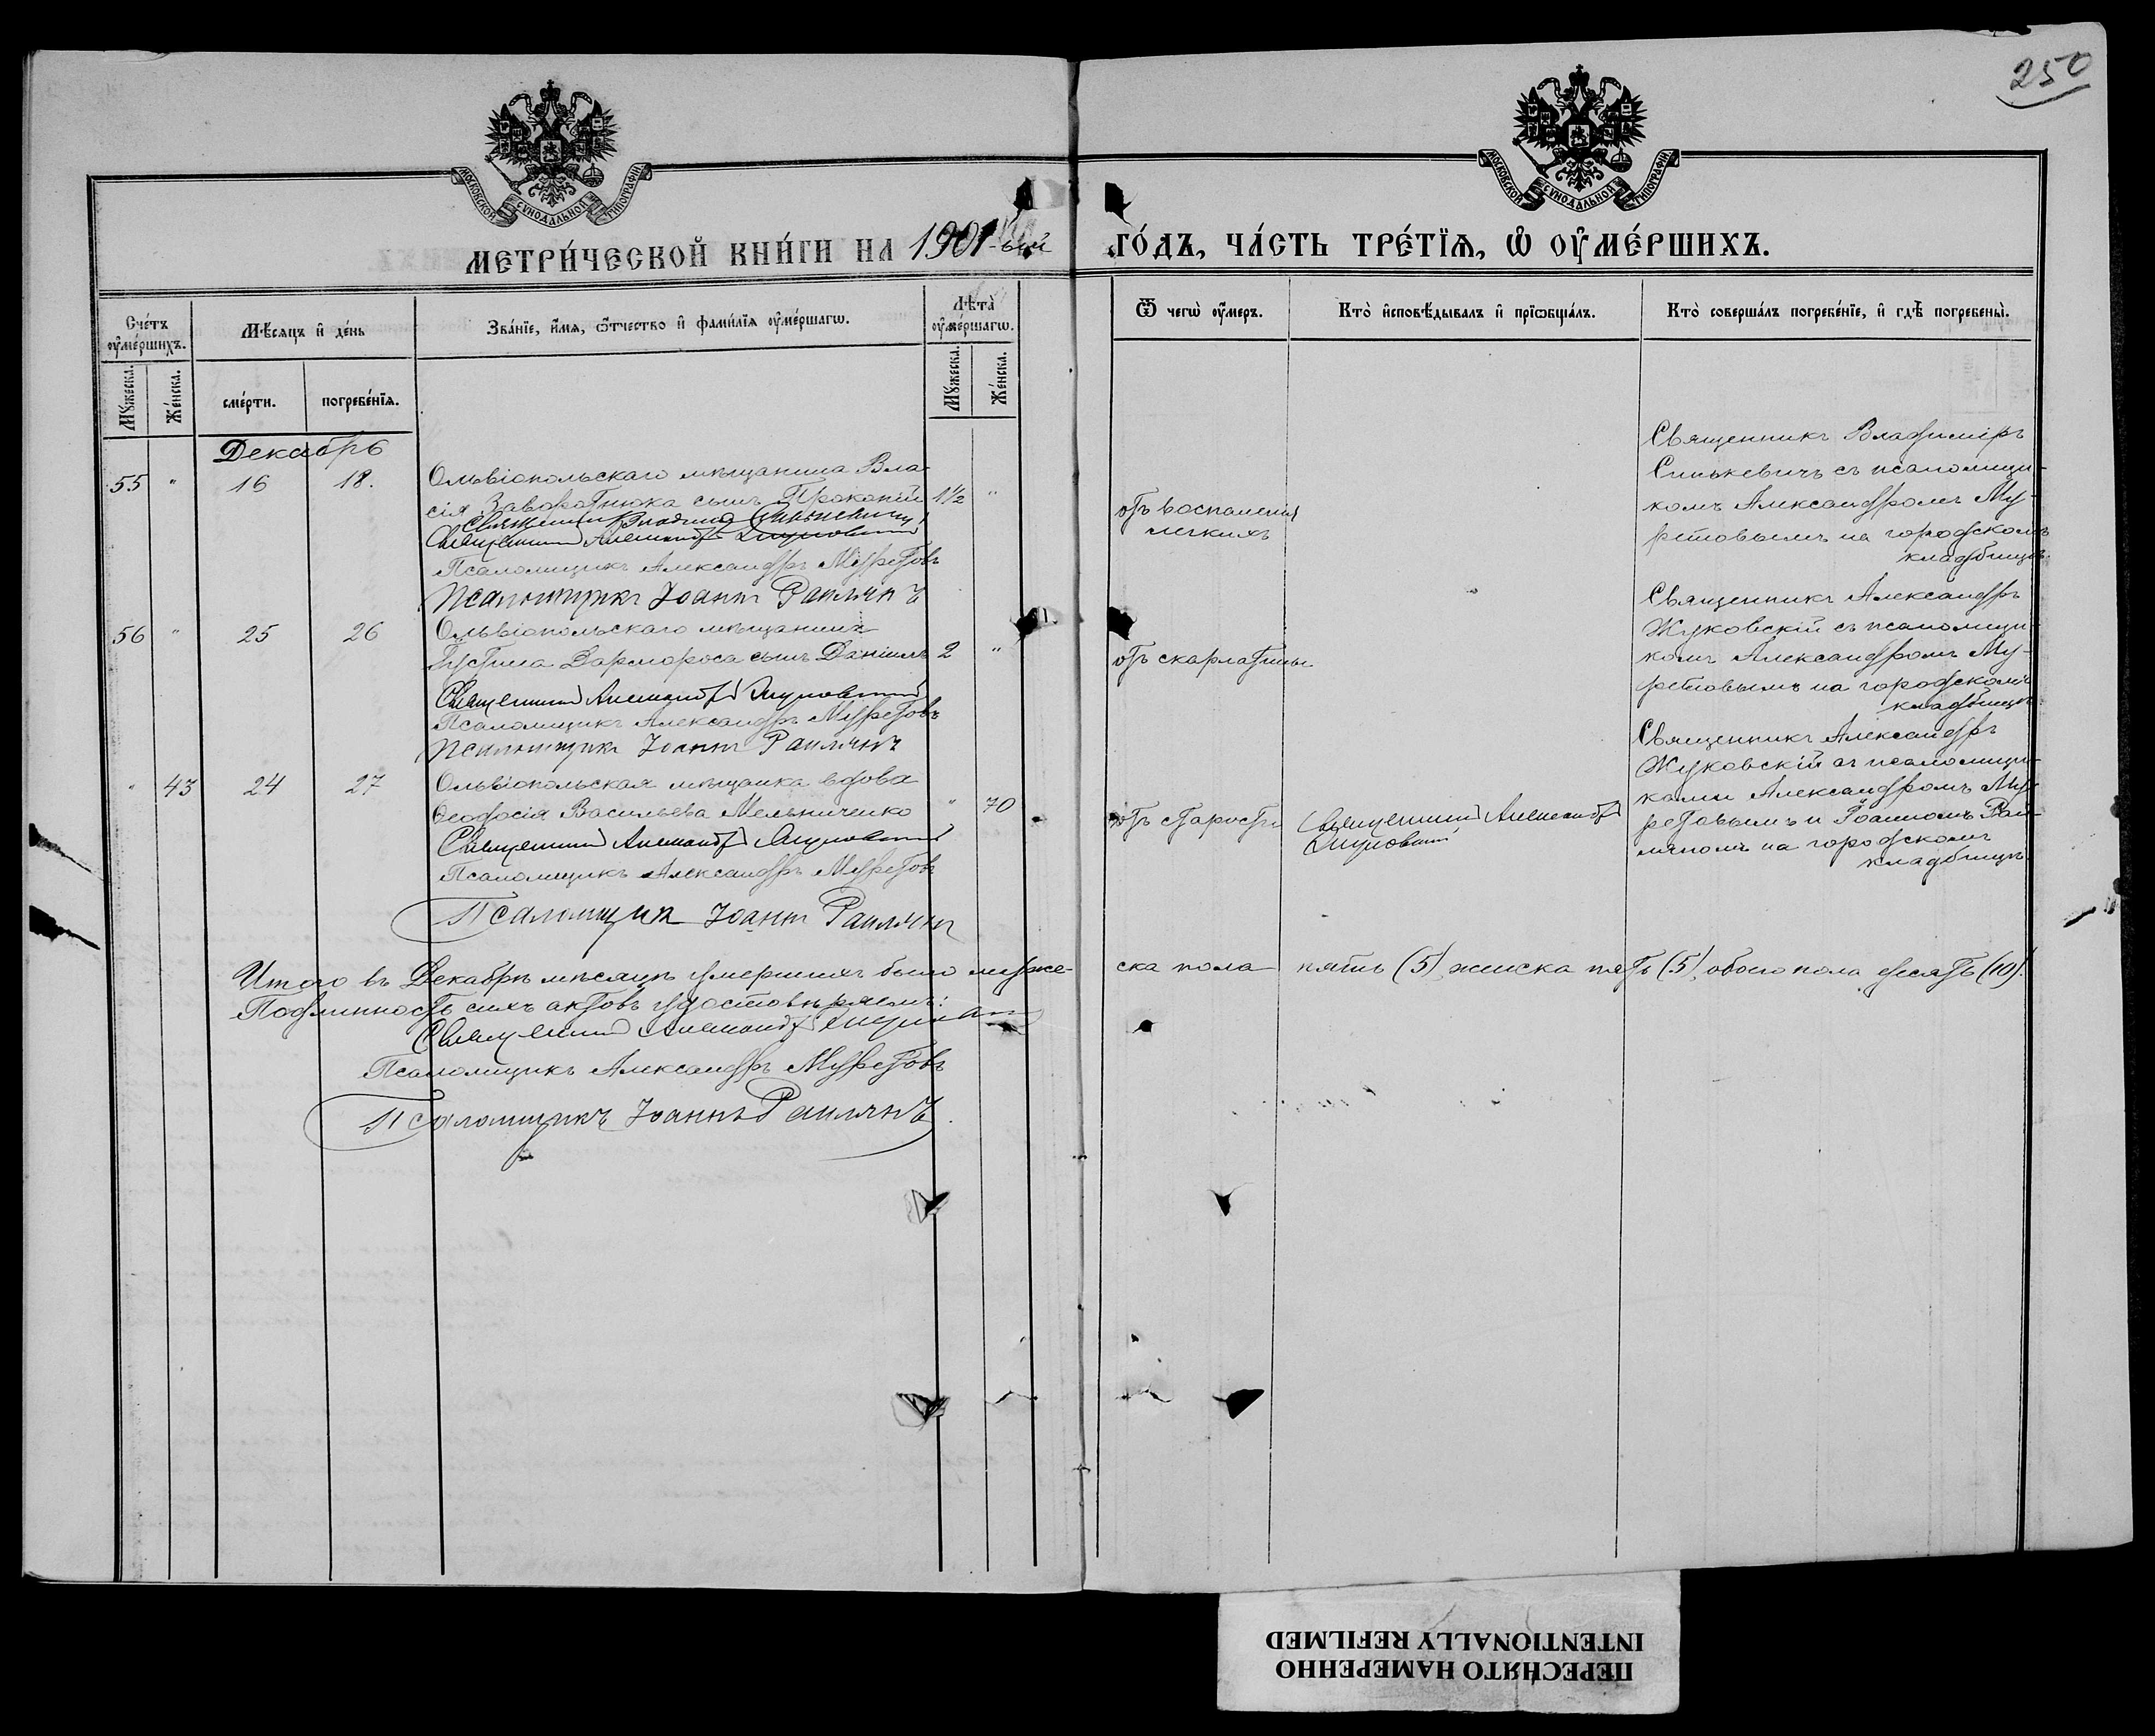 250
МОСКОВСКОЙ СѴНОДАЛЬНОЙ ТИПОГРАФІИ.
МОСКОВСКОЙ СѴНОДАЛЬНОЙ ТИПОГРАФІИ.
МЕТРИ́ЧЕСКОЙ КНИ́ГИ НА 1901-ый ГО́ДЪ, ЧА́СТЬ ТРЕ́ТЇѦ, Ѡ҆ ОУ҆МЕ́РШИХЪ.
Сче́тъ оу҆ме́ршихъ.
Мꙋ́жеска.
Же́нска.
Мѣ́сѧцъ и҆ де́нь
сме́рти.
погребе́нїѧ.
Зва́нїе, и҆́мѧ, ѻ҆́тчество и҆ фами́лїѧ оу҆ме́ршагѡ.
Лѣта̀ оу҆ме́ршагѡ.
Мꙋ́жеска.
Же́нска.
Ѿ чегѡ̀ оу҆́меръ.
Кто̀ и҆сповѣ́дывалъ и҆ прїѡбща́лъ.
Кто̀ соверша́лъ погребе́нїе, и҆ гдѣ̀ погребены̀.
Декабрь
55 " 16 18.
Ольвіопольскаго мѣщанина Вла-
сія Заворотнюка сынъ Прокопій 1½ "
Священникъ Владимір Синькевичъ
Священникъ Александръ Жуковскій
Псаломщикъ Александръ Муретовъ
Псаломщикъ Іоаннъ Раилянъ
отъ воспаленія
легкихъ
Священникъ Владиміръ
Синькевичъ съ псаломщи-
комъ Александромъ Му-
ретовымъ на городскомъ
кладбищѣ.
56 " 25 26
Ольвіопольскаго мѣщанина
Іустина Дармороса сынъ Даніилъ 2 "
Священникъ Александръ Жуковскій
Псаломщикъ Александръ Муретовъ
Псаломщикъ Іоаннъ Раилянъ
отъ скарлатины
Священникъ Александръ
Жуковскій съ псаломщи-
комъ Александромъ Му-
ретовымъ на городскомъ
кладбищѣ
" 43 24 27
Ольвіопольская мѣщанка вдова
Ѳеодосія Васильева Мельниченко " 70
Священникъ Александръ Жуковскій
Псаломщикъ Александръ Муретовъ
Псаломщикъ Іоаннъ Раилянъ
отъ старости
Священникъ Александръ
Жуковскій
Священникъ Александръ
Жуковскій съ псаломщи-
ками Александромъ Му-
ретовымъ и Іоанномъ Раи-
ляномъ на городскомъ
кладбищѣ.
Итого въ Декабрѣ мѣсяцѣ умершихъ было муже-ска пола пять (5), женска пять (5), обоего пола десять (10).
Подлинность сихъ актовъ удостовѣряемъ:
Священникъ Александръ Жуковскій
Псаломщикъ Александръ Муретовъ
Псаломщикъ Іоаннъ Раилянъ.
ПЕРЕСНЯТО НАМЕРЕННО
INTENTIONALLY REFILMED